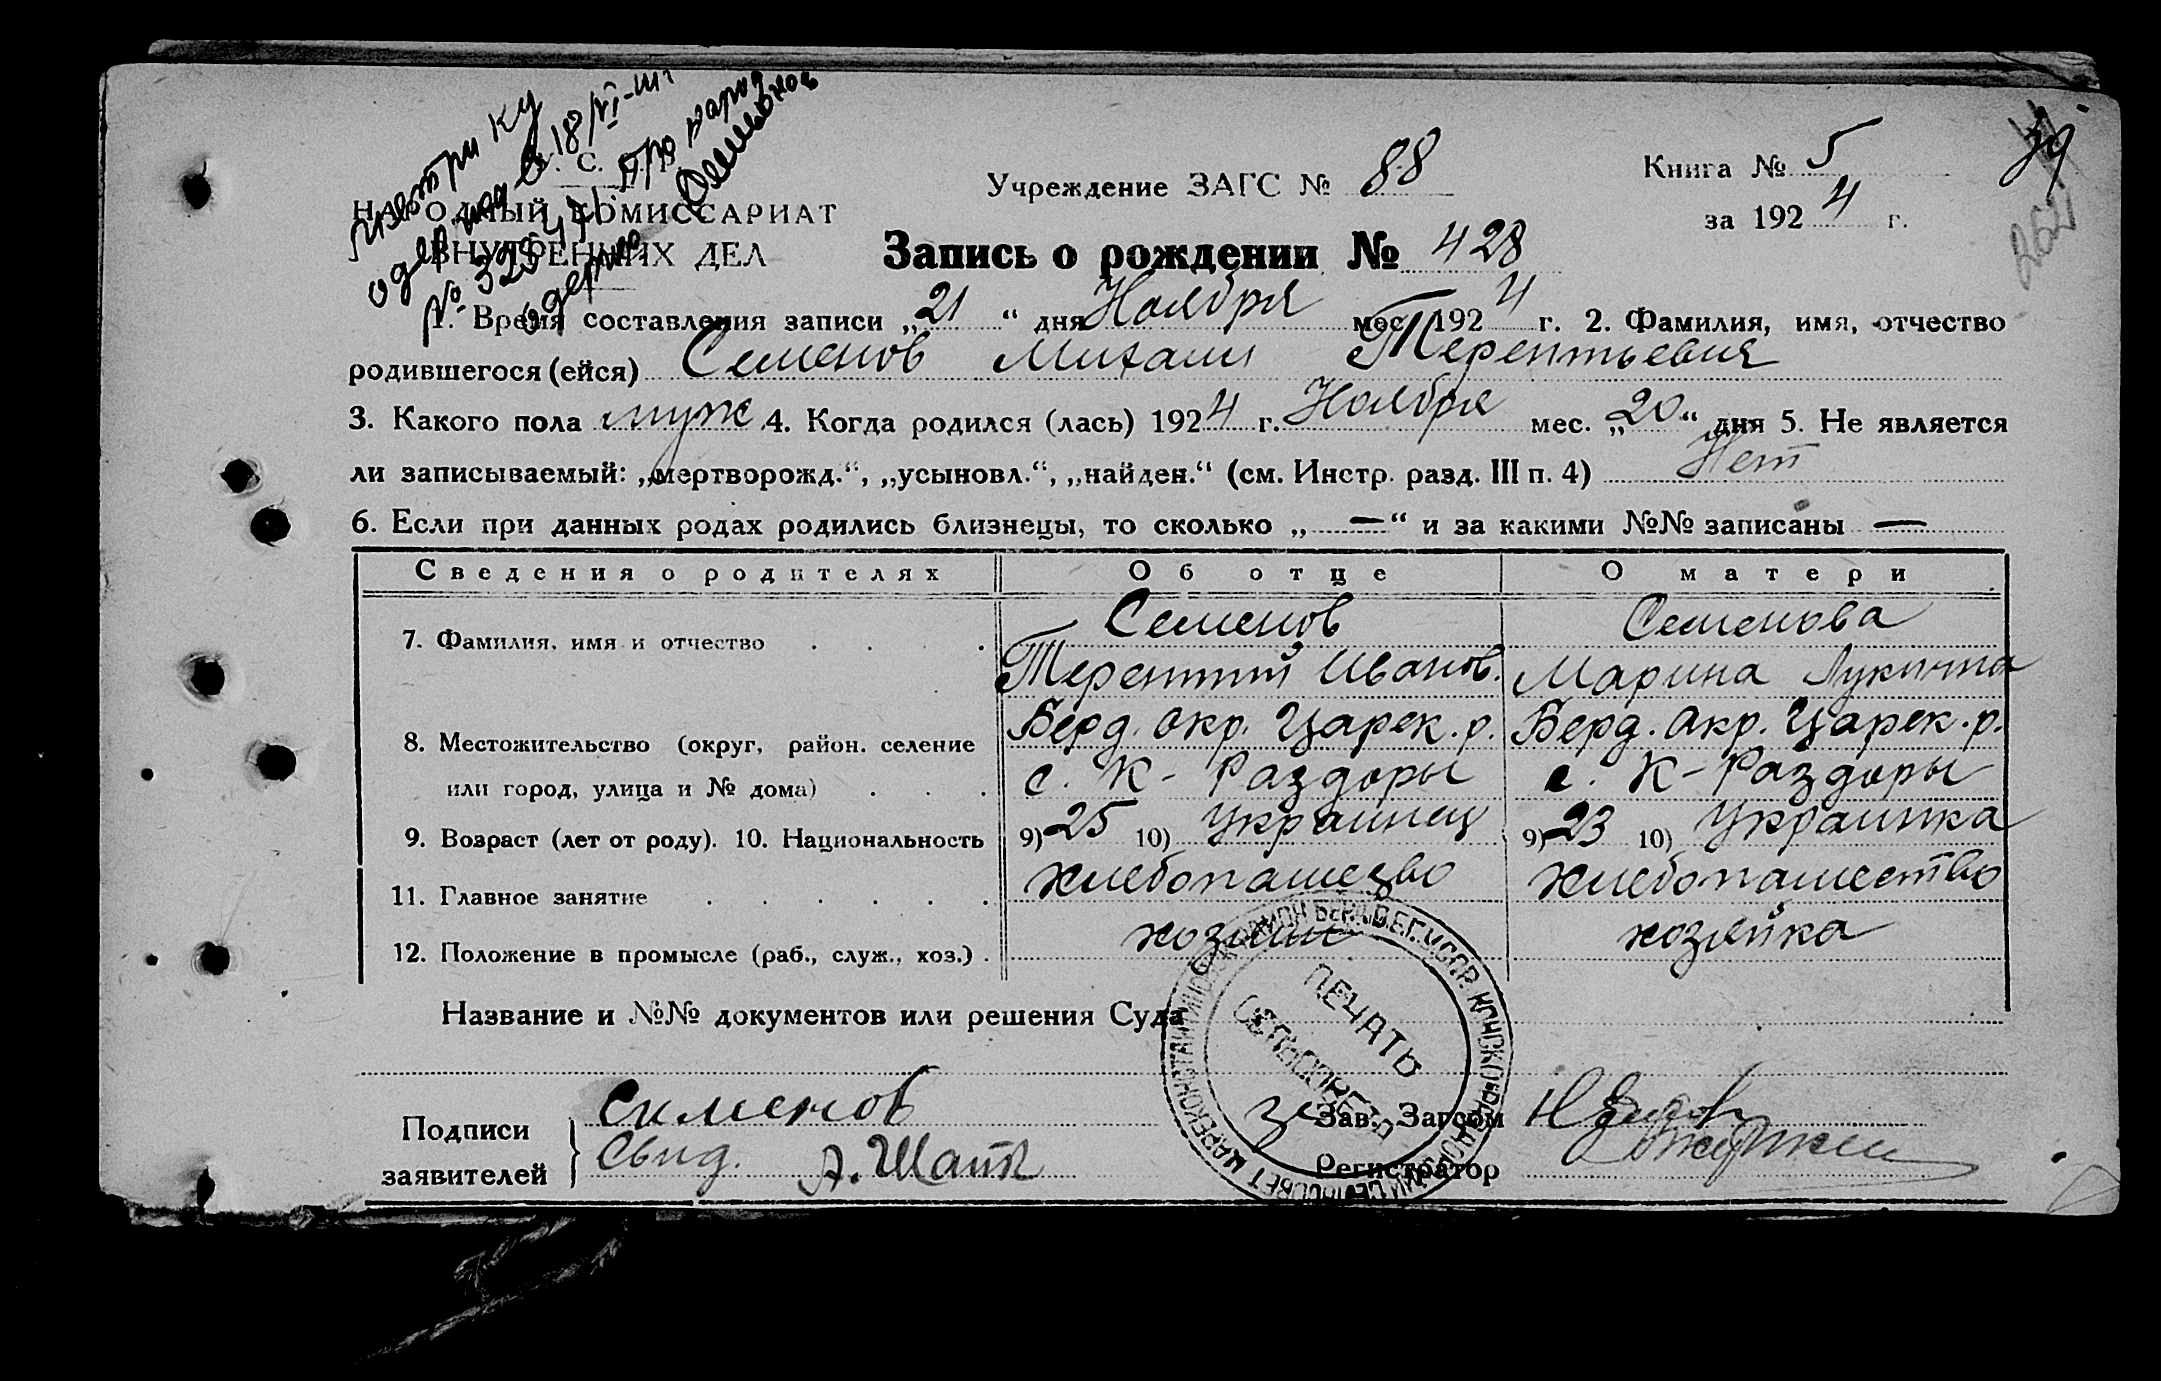 Метрику
одержав 18/VI-
№ 32947. Про народ
одержав Семенов
Учреждение ЗАГС № 88
Книга № 5
за 1924 г.
39
262
НАРОДНЫЙ КОМИССАРИАТ
ВНУТРЕННИХ ДЕЛ
Запись о рождении № 428
1. Время составления записи „21“ дня Ноября мес. 1924 г. 2. Фамилия, имя, отчество
родившегося (ейся) Семенов Михаил Терентьевич
3. Какого пола муж 4. Когда родился (лась) 1924 г. Ноября мес. „20“ дня 5. Не является
ли записываемый: „мертворожд.“, „усыновл.“, „найден.“ (см. Инстр. разд. III п. 4) Нет
6. Если при данных родах родились близнецы, то сколько „—“ и за какими №№ записаны —
Сведения о родителях Об отце О матери
7. Фамилия, имя и отчество Семенов Семенова
Терентий Иванов. Марина Лукична
8. Местожительство (округ, район, селение Берд. окр. Царек. р. Берд. окр. Царек. р.
или город, улица и № дома) с. К-Раздоры с. К-Раздоры
9. Возраст (лет от роду). 10. Национальность 9) 25 10) Украинец 9) 23 10) Украинка
11. Главное занятие хлебопашество хлебопашество
12. Положение в промысле (раб., служ., хоз.) хозяин хозяйка
Название и №№ документов или решения Суда
ПЕЧАТЬ
СЕЛЬСОВЕТА
Подписи
заявителей
Семенов
Свид. А. Шапк
За Зав. Загсом
Регистратор